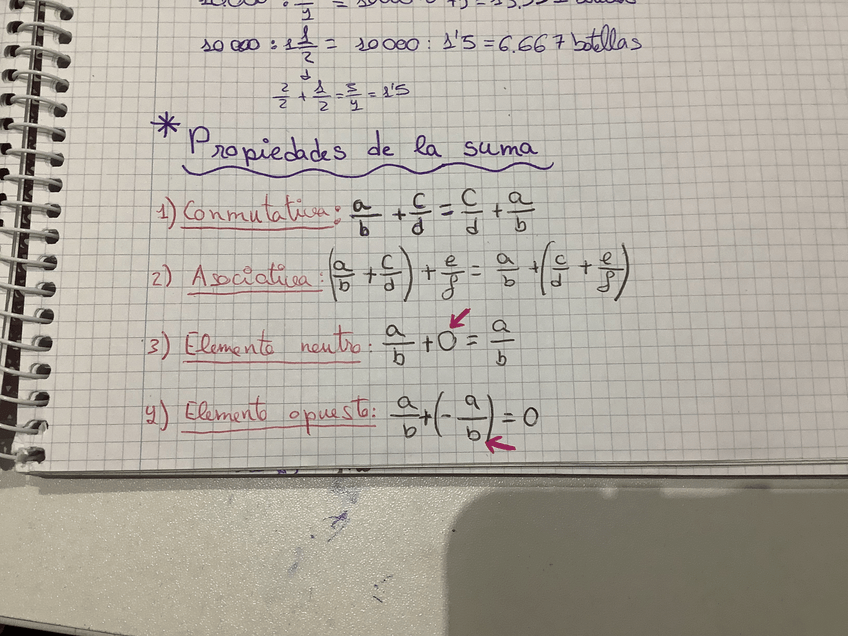 10000 : 1 1/2 = 10000 : 1'5 = 6.667 botellas
2/2 + 1/2 = 3/4 = 1'5
* Propiedades de la suma
1) Conmutativa: a/b + c/d = c/d + a/b
2) Asociativa: (a/b + c/d) + e/f = a/b + (c/d + e/f)
3) Elemento neutro: a/b + 0 = a/b
4) Elemento opuesto: a/b + (- a/b) = 0